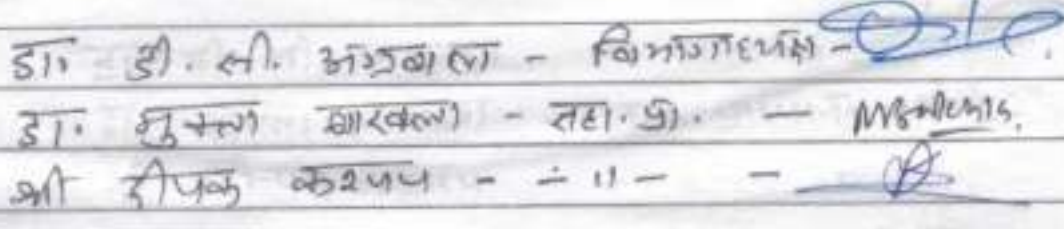 डा. डी. सी. अग्रवाल - विभागाध्यक्ष -
डा. मुक्ता मारवला - सहा. प्रा. -
श्री दीपक कश्यप - - 11 - -